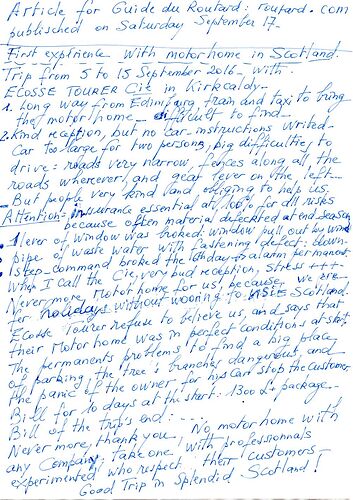 Article for Guide du Routard: routard.com
published on Saturday September 17-
First expérience with motorhome in Scotland.
Trip from 5 to 15 September 2016 - with -
ECOSSE TOURER Cie in Kirkcaldy-
1. Long way from Edimburg, train and taxi to bring
the motorhome - difficult to find -
2. Kind reception, but no car-instructions writed-
Car too large for two persons, big difficulties, to
drive: roads very narrow, fences along all the
roads wherever, and gear lever on the left-
- But people very kind and obliging to help us.
Attention: insurance essential at 100% for all risks
because often material defected at end season
• 1 lever of window was broked: window pull out by wind
• pipe of waste water with fastening defect: blown-
• 1 step-command broked the 1st day → alarm permanent
When I call the Cie, very bad reception, stress +++
Never more Motorhome for us, because we are
for holidays without wooring to visit Scotland.
Ecosse Tourer refuse to believe us, and says that
their Motorhome was in perfect conditions at start.
The permanents problems, to find a big place
of parking, the tree's branches dangerous, and
the panic of the owner for his car stop the customer
Bill for 10 days at the start: 1300 £ - package -
Bill of the trip's end: - ... -
Never more, thank you, No motorhome with
any Company: take one with professionnals
experimented who respect their customers -
Good Trip in Splendid Scotland!